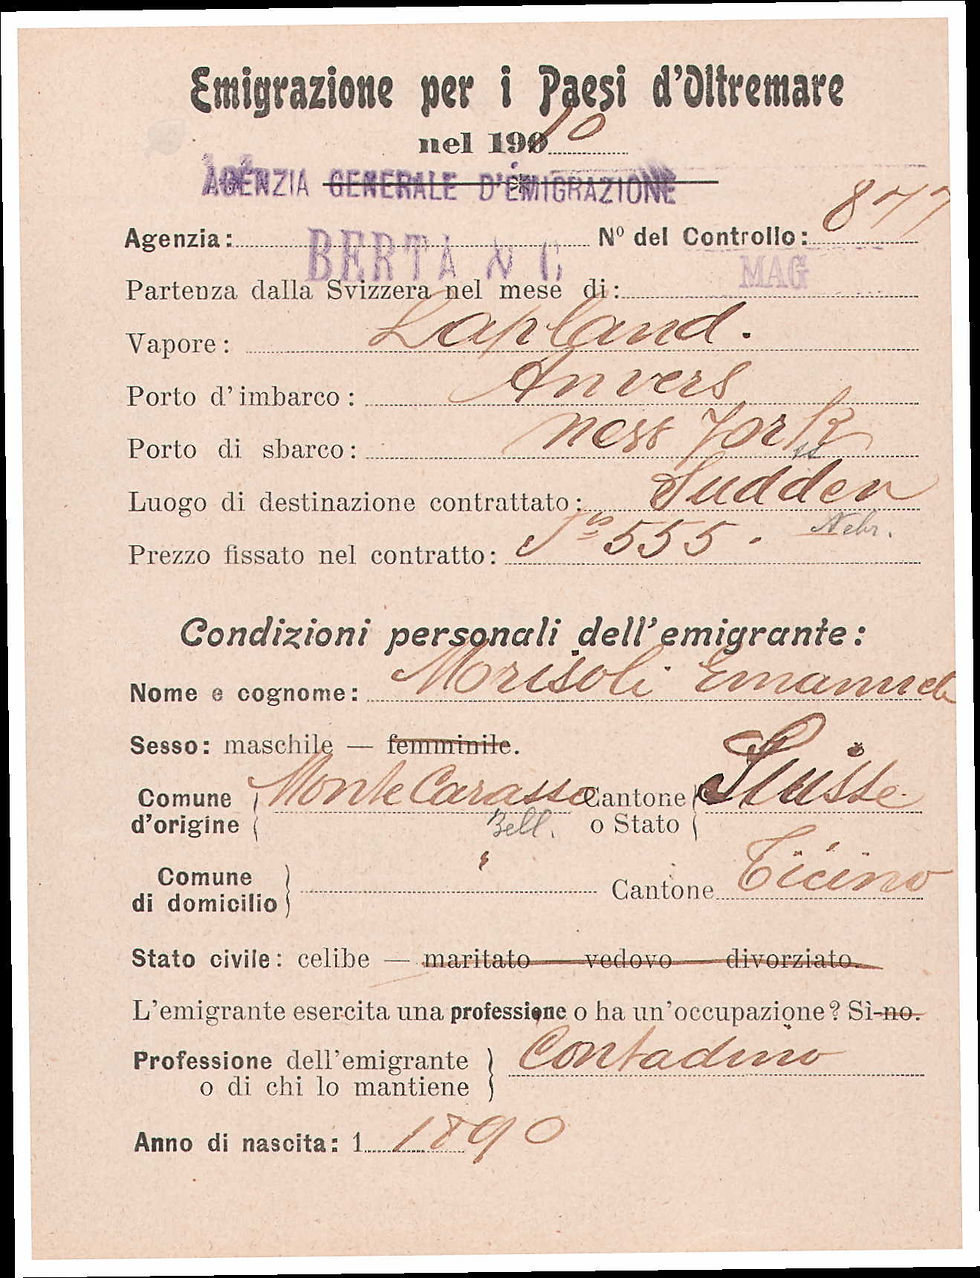 Emigrazione per i Paesi d'Oltremare
nel 190 10
AGENZIA GENERALE D'EMIGRAZIONE
Agenzia: BERTA N C Nº del Controllo: 877
Partenza dalla Svizzera nel mese di: MAG
Vapore: Lapland.
Porto d'imbarco: Anvers
Porto di sbarco: New York
Luogo di destinazione contrattato: Sudden
Nebr.
Prezzo fissato nel contratto: 555.
Condizioni personali dell'emigrante:
Nome e cognome: Morisoli Emanuele
Sesso: maschile — femminile.
Comune d'origine Monte Carasso Cantone o Stato Suisse
Bell.
Comune di domicilio " Cantone Ticino
Stato civile: celibe — maritato — vedovo — divorziato.
L'emigrante esercita una professione o ha un'occupazione? Sì-no.
Professione dell'emigrante Contadino
o di chi lo mantiene
Anno di nascita: 1 1890